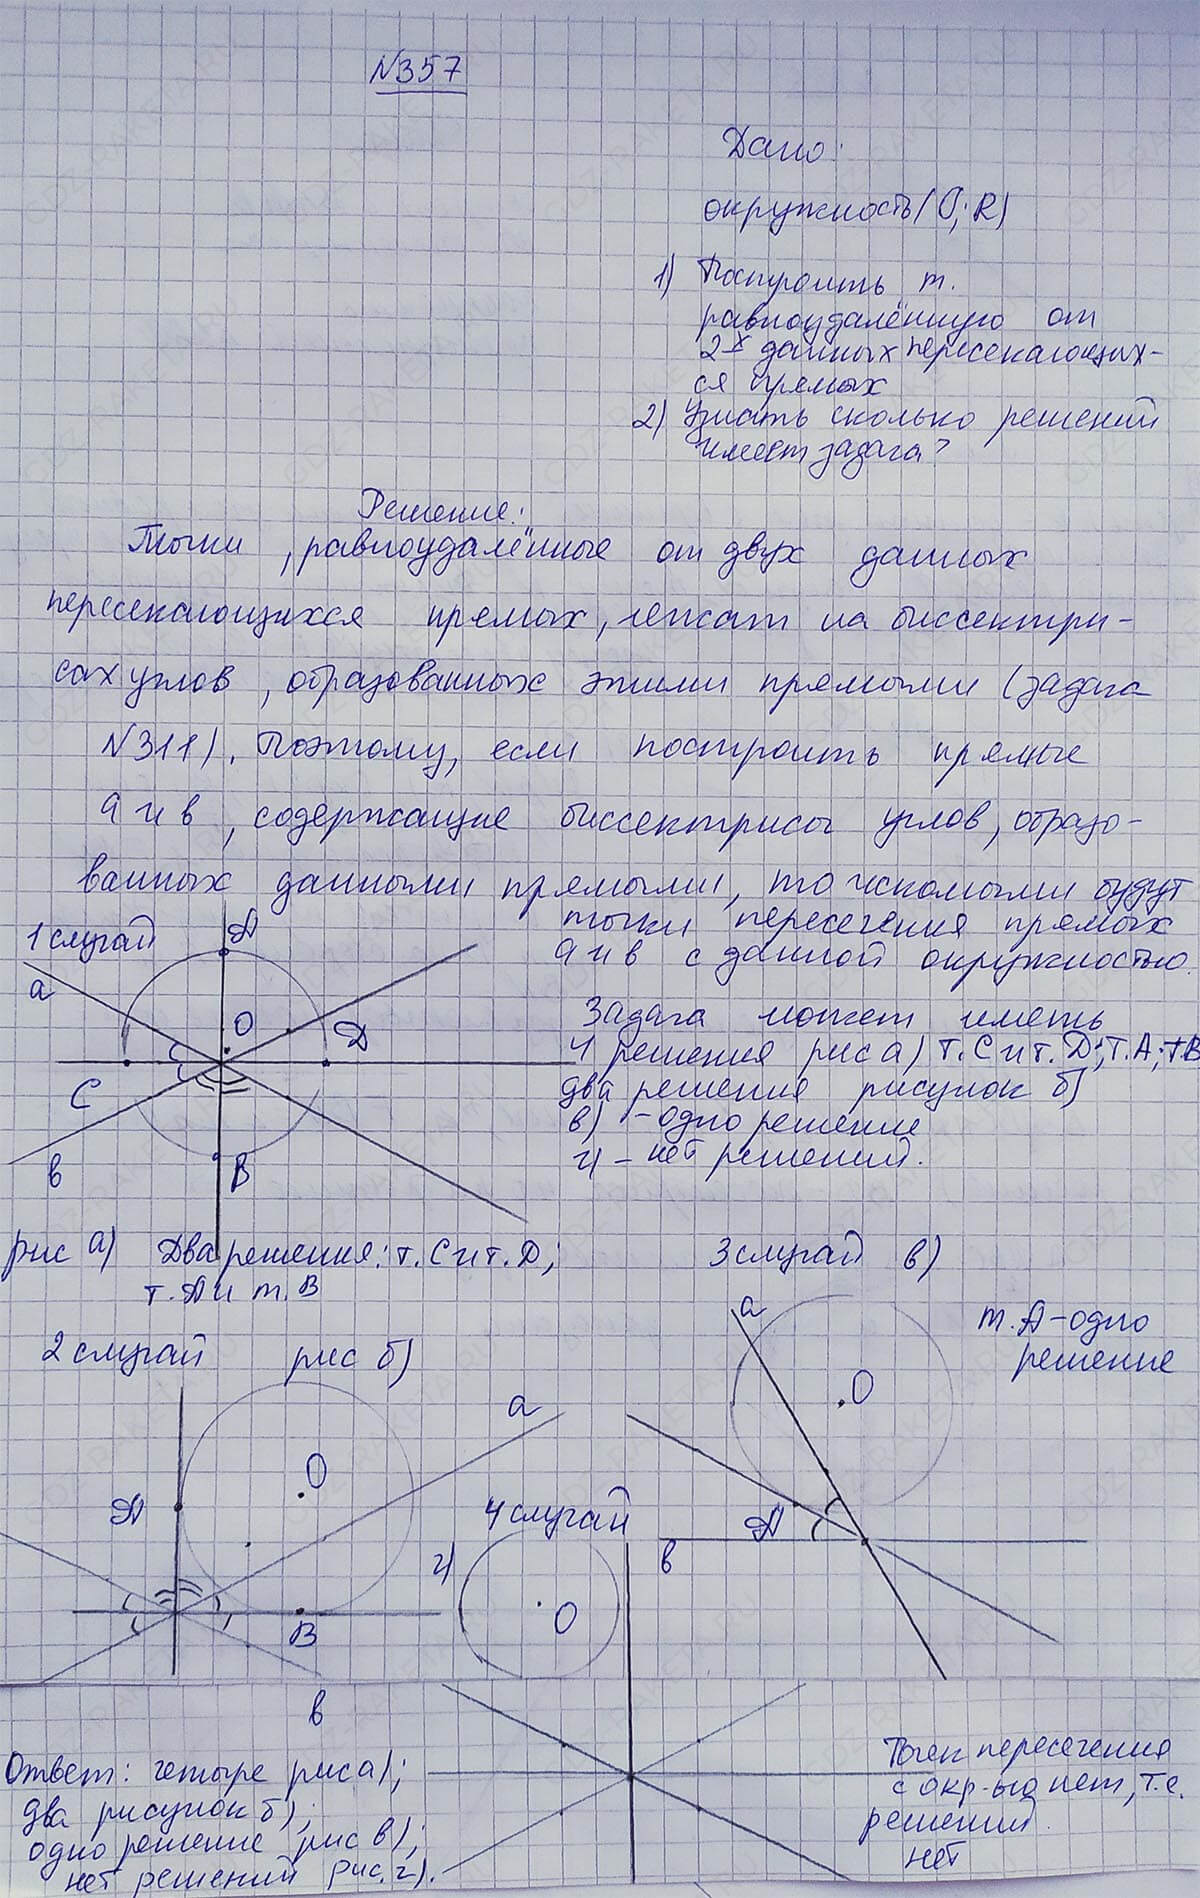 N357
Дано:
окружность (O; R)
1) Построить т.
равноудалённую от
2-х данных пересекающих-
ся прямых
2) Узнать сколько решений
имеет задача?
Решение:
Точки, равноудалённые от двух данных
пересекающихся прямых, лежат на биссектри-
сах углов, образованных этими прямыми (задача
N311). Поэтому, если построить прямые
а и в, содержащие биссектрисы углов, образо-
ванных данными прямыми, то искомыми будут
точки пересечения прямых
а и в с данной окружностью.
1 случай
A
a
O
D
C
B
в
Задача может иметь
4 решения рис а) т.C и т. D; т. A; т. B
два решения рисунок б)
в) - одно решение
г) - нет решений.
рис а) Два решения: т. C и т. D;
т. A и т. B
3 случай в)
a
O
A
в
т. A - одно
решение
2 случай рис б)
a
O
A
B
в
4 случай
г)
O
Точек пересечения
с окр-ью нет, т.е.
решений
нет
Ответ: четыре рис а);
два рисунок б);
одно решение рис в);
нет решений рис. г).